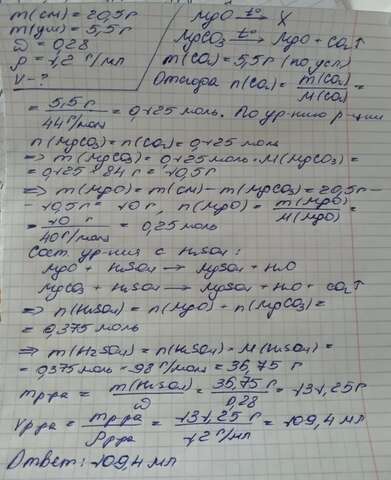 m(см) = 20,5 г
m(ум) = 5,5 г
ω = 0,28
ρ = 1,2 г/мл
V - ?
MgO t°→ X
MgCO3 t°→ MgO + CO2↑
m(CO2) = 5,5 г (по усл)
Отсюда n(CO2) = m(CO2)/M(CO2) =
= 5,5 г/44 г/моль = 0,125 моль. По ур-нию р-ции
n(MgCO3) = n(CO2) = 0,125 моль
⇒ m(MgCO3) = 0,125 моль · M(MgCO3) =
= 0,125 · 84 г = 10,5 г
⇒ m(MgO) = m(см) - m(MgCO3) = 20,5 г -
- 10,5 г = 10 г, n(MgO) = m(MgO)/M(MgO) =
= 10 г/40 г/моль = 0,25 моль
Сост. ур-ния с H2SO4:
MgO + H2SO4 → MgSO4 + H2O
MgCO3 + H2SO4 → MgSO4 + H2O + CO2↑
⇒ n(H2SO4) = n(MgO) + n(MgCO3) =
= 0,375 моль
⇒ m(H2SO4) = n(H2SO4) · M(H2SO4) =
= 0,375 моль · 98 г/моль = 36,75 г
mр-ра = m(H2SO4)/ω = 36,75 г/0,28 = 131,25 г
Vр-ра = mр-ра/ρр-ра = 131,25 г/1,2 г/мл = 109,4 мл
Ответ: 109,4 мл